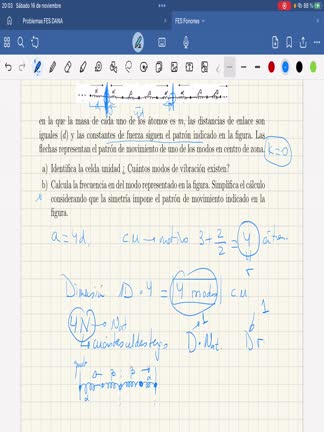 20:03 Sábado 16 de noviembre
88 %
Problemas FES DANA
FES Fonones
en la que la masa de cada uno de los átomos es m, las distancias de enlace son
iguales (d) y las constantes de fuerza siguen el patrón indicado en la figura. Las
flechas representan el patrón de movimiento de uno de los modos en centro de zona.
K=0
a) Identifica la celda unidad ¿ Cuántos modos de vibración existen?
b) Calcula la frecuencia en del modo representado en la figura. Simplifica el cálculo
considerando que la simetría impone el patrón de movimiento indicado en la
figura.
a = 4d.
c.u → motivo 3 + 2/2 = 4
r
Dimensión 1D · 4 = 4 modos c.u.
1
4N → Nat
D · Nat.
D r